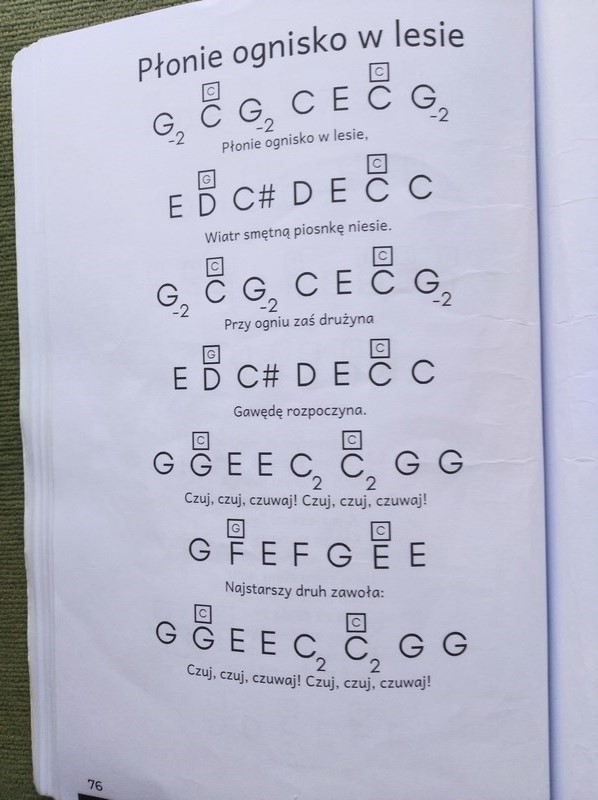 Płonie ognisko w lesie
C C
G-2 C G-2 C E C G-2
Płonie ognisko w lesie,
G C
E D C# D E C C
Wiatr smętną piosnkę niesie.
C C
G-2 C G-2 C E C G-2
Przy ogniu zaś drużyna
G C
E D C# D E C C
Gawędę rozpoczyna.
C C
G G E E C2 C2 G G
Czuj, czuj, czuwaj! Czuj, czuj, czuwaj!
G C
G F E F G E E
Najstarszy druh zawoła:
C C
G G E E C2 C2 G G
Czuj, czuj, czuwaj! Czuj, czuj, czuwaj!
76